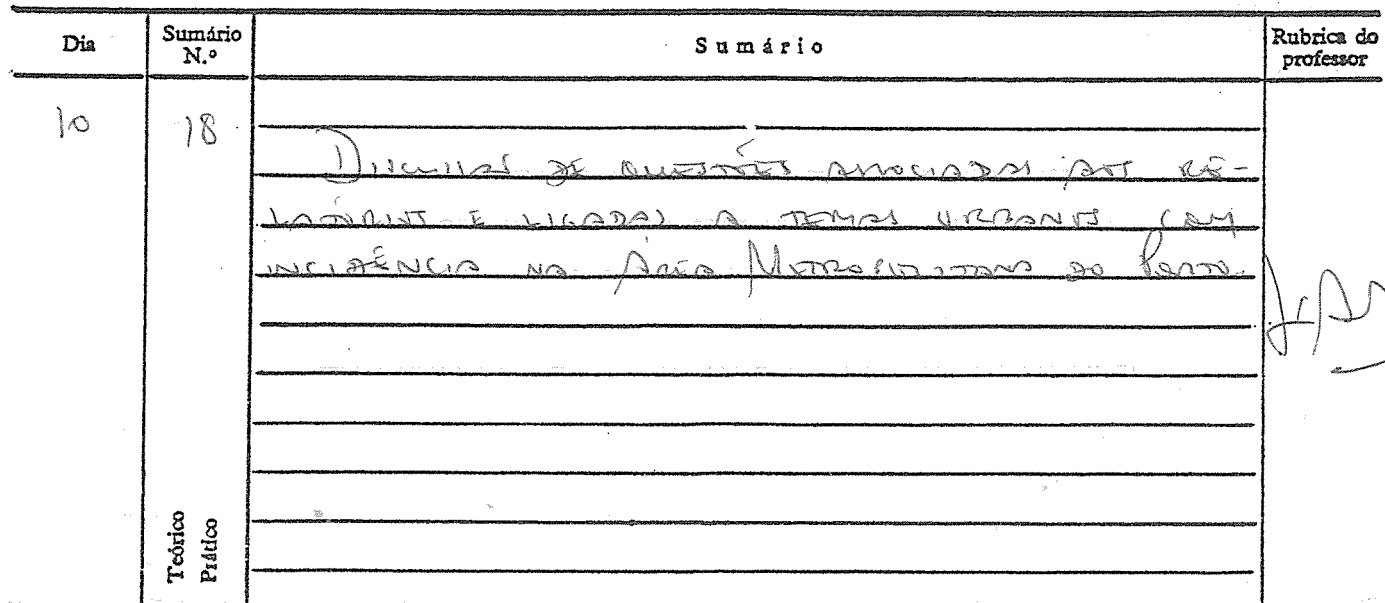 Dia
Sumário N.º
Sumário
Rubrica do professor
10
18
DISCUSSÃO DE QUESTÕES ASSOCIADAS AOS RE-
LATÓRIOS E LIGADAS A TEMAS URBANOS COM
INCIDÊNCIA NA ÁREA METROPOLITANA DO PORTO.
Teórico
Prático